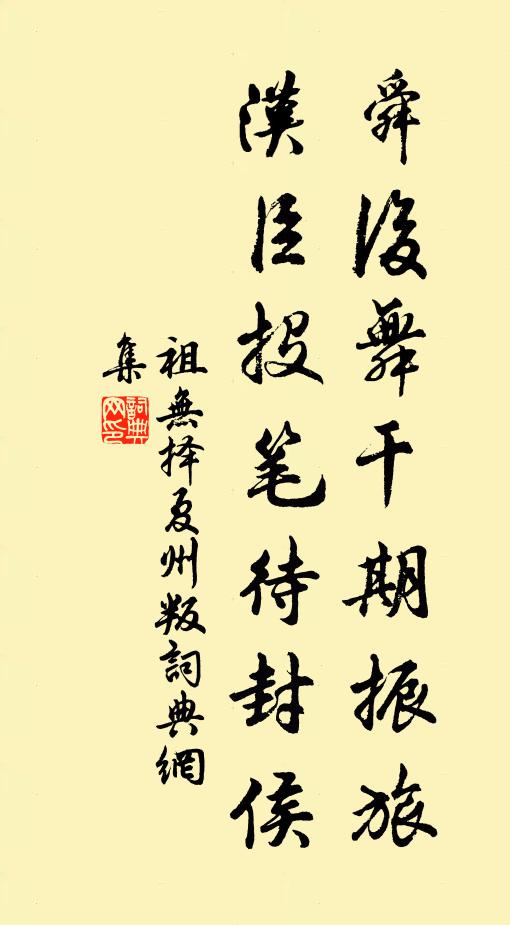 舜後舞干期振旅
漢臣投笔待封侯
祖無择夏州叛詞典網
集
詞典網印